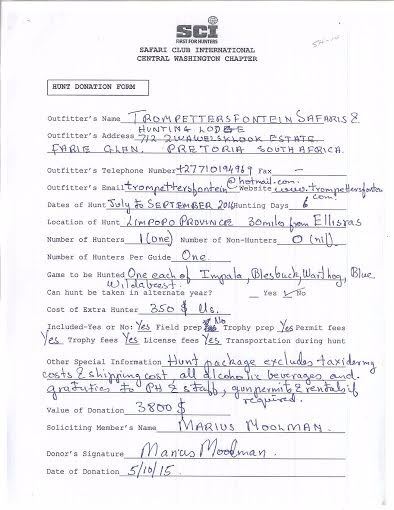 SCI
FIRST FOR HUNTERS
SAFARI CLUB INTERNATIONAL
CENTRAL WASHINGTON CHAPTER
HUNT DONATION FORM
Outfitter's Name TROMPETTERSFONTEIN SAFARIS &
HUNTING LODGE
Outfitter's Address 712 ZWAWELSKLOOK ESTATE
FARIE GLEN. PRETORIA SOUTH AFRICA.
Outfitter's Telephone Number +27710194969 Fax -
Outfitter's Email trompettersfontein@hotmail.com Website www.trompettersfontein.com
Dates of Hunt July to SEPTEMBER 2016 Hunting Days 6
Location of Hunt LIMPOPO PROVINCE 30milo from Ellisras
Number of Hunters 1 (one) Number of Non-Hunters 0 (nil)
Number of Hunters Per Guide One.
Game to be Hunted One each of Impala, Blesbuck, Warthog, Blue
Wildabeest.
Can hunt be taken in alternate year? Yes ✓ No
Cost of Extra Hunter 350 $ Us.
Included-Yes or No: Yes Field prep No Trophy prep Yes Permit fees
Yes Trophy fees Yes License fees Yes Transportation during hunt
Other Special Information Hunt package excludes taxidermy
costs & shipping cost, all alcoholic beverages and
gratuties to PH & staff, gunpermit & rentals if
required.
Value of Donation 3800 $
Soliciting Member's Name MARIUS MOOLMAN.
Donor's Signature Marius Moolman.
Date of Donation 5/10/15.